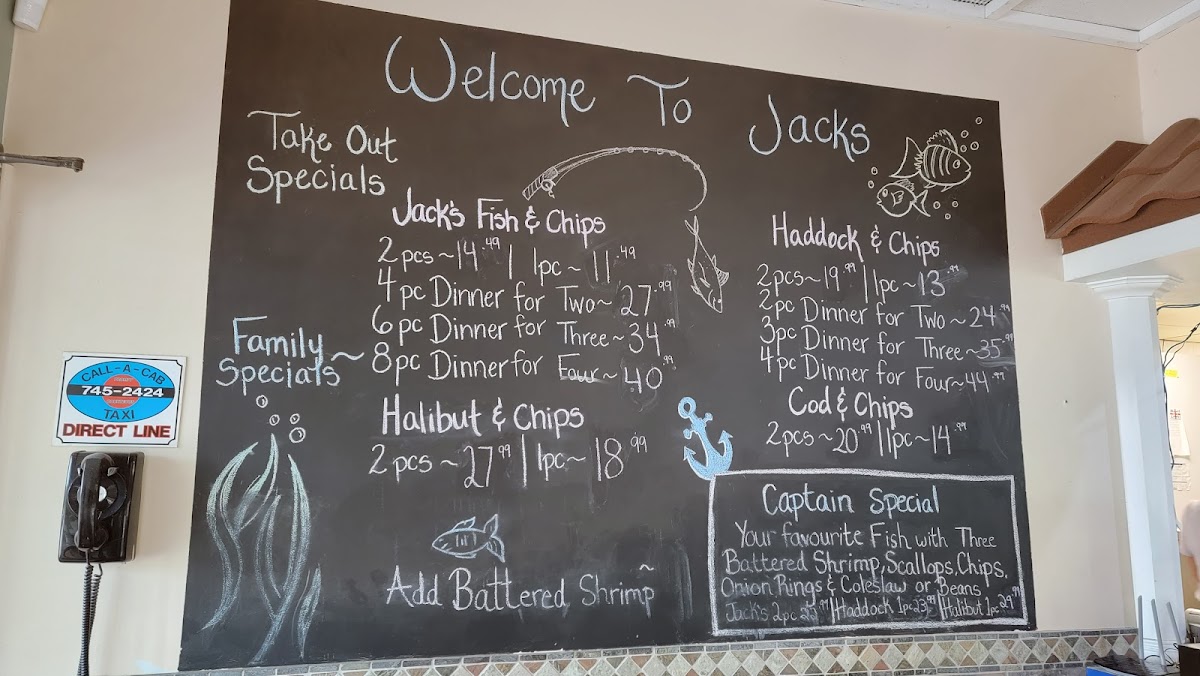 Welcome To Jacks
Take Out
Specials
Jack's Fish & Chips
2 pcs ~ 14.49 | 1pc ~ 11.49
4 pc Dinner for Two ~ 27.99
6 pc Dinner for Three ~ 34.99
8 pc Dinner for Four ~ 40.99
Family ~
Specials
Halibut & Chips
2 pcs ~ 27.99 | 1pc ~ 18.99
Add Battered Shrimp ~
Haddock & Chips
2pcs ~ 19.99 | 1pc ~ 13.99
2pc Dinner for Two ~ 24.99
3pc Dinner for Three ~ 35.99
4pc Dinner for Four ~ 44.99
Cod & Chips
2pcs ~ 20.99 | 1pc ~ 14.99
Captain Special
Your favourite Fish with Three
Battered Shrimp, Scallops, Chips,
Onion Rings & Coleslaw or Beans
Jack's 2pc | Haddock 1pc 23.99 | Halibut 1pc 29.99
CALL-A-CAB
745-2424
TAXI
DIRECT LINE